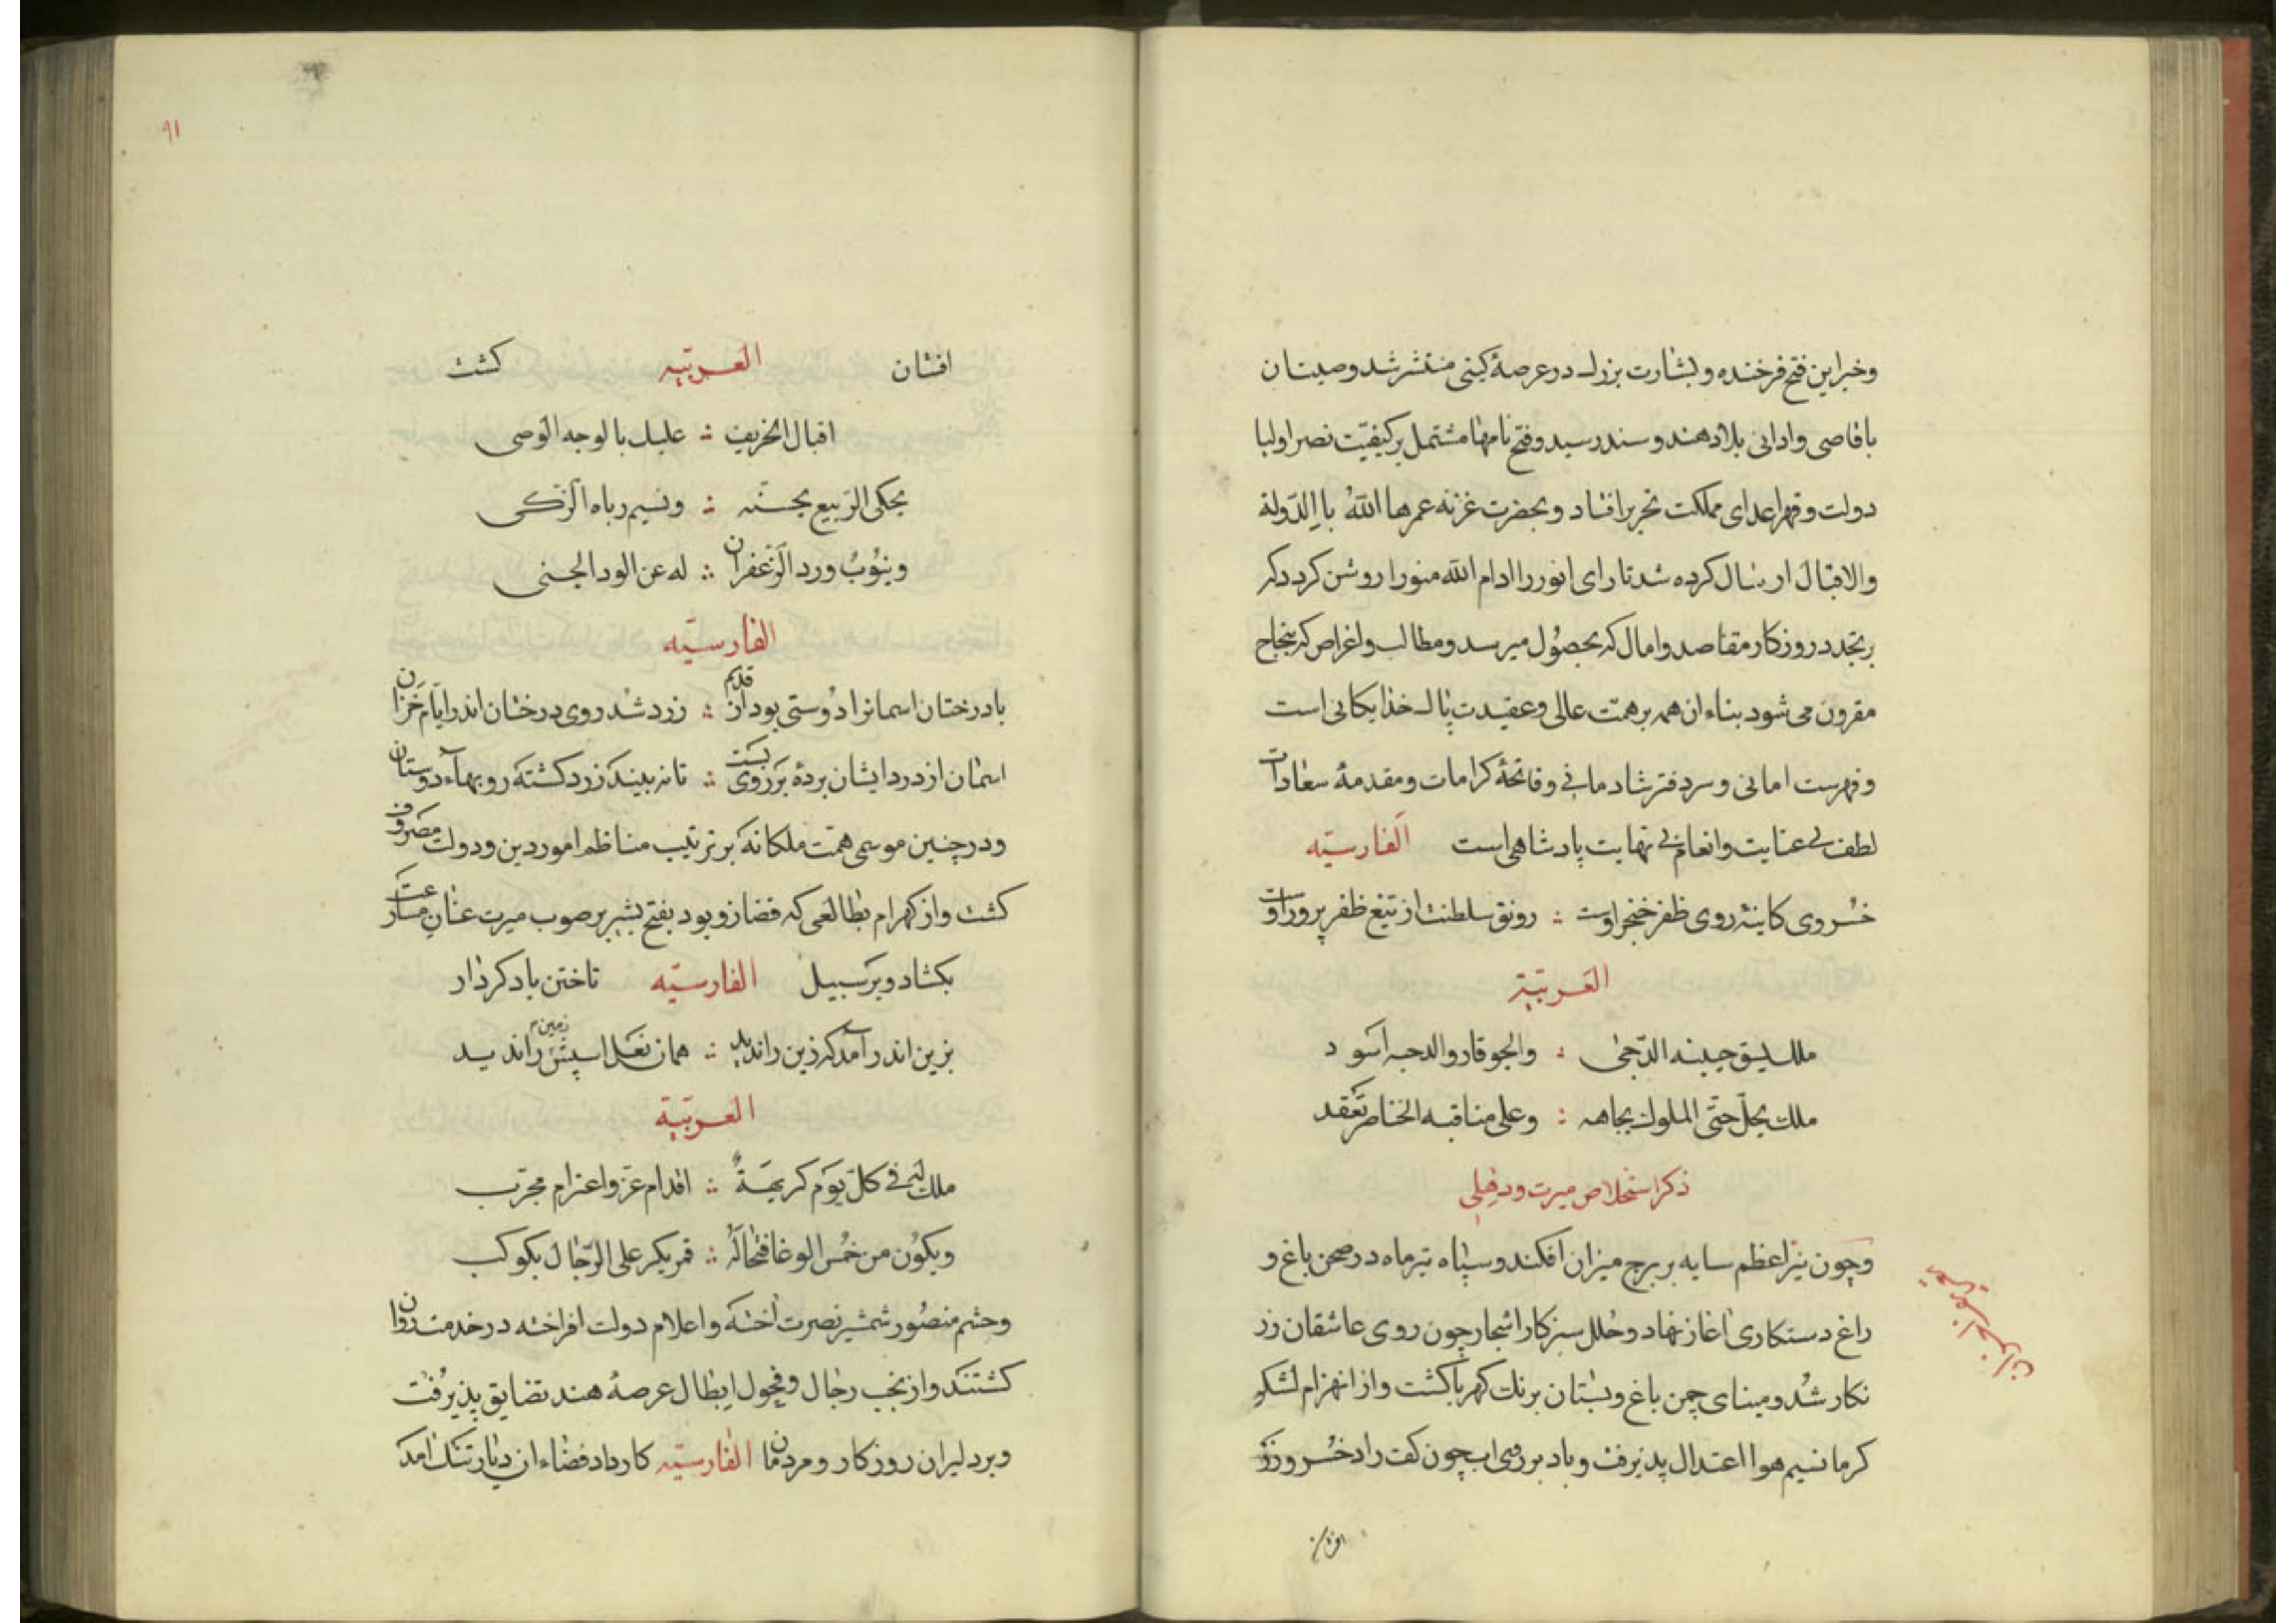 وخبر این فتح فرخنده و بشارت بزرک در عرصۀ کیتی منتشر شد وصیت ان
باقاصی وادانی بلاد هند و سند رسید وفتح نامها مشتمل بر کیفیّت نصر اولیا
دولت وقهر اعدای مملکت تحریر افتاد وبحضرت غزنه عمرها اللهُ باالدّولة
والاقبال ارسال کرده شد تا رای انور را ادام الله منورا روشن کردد که
بر تجدد روزکار مقاصد وامال که بحصُول میرسد ومطالب واغراض که بنجاح
مقرون می شود بناء ان همه بر همّت عالی وعقیدت پاک خذایکانی است
وفهرست امانی وسر دفتر شادمانی وفاتحۀ کرامات ومقدمۀ سعادات
لطف بی عنایت وانعام بی نهایت پادشاهی است الفارسیّه
خسروی کاینۀ روی ظفر خنجر اوست ∴ رونق سلطنت از تیغ ظفر پرور اوست
العَربیّة
ملك جبینه الدّجی ∴ والجو قار والد اسود
ملك یجلّ حتّی الملوك بجاهه ∴ وعلی مناقبه الخناصر تعقد
ذکر استخلاص میرت ودهلی
وچون نیّر اعظم سایه بر برج میزان افکند وسپاه تیرماه در صحن باغ و
راغ دستکاری اغاز نهاد وحُلل سبز کار اشجار چون روی عاشقان زر
نکار شُد ومینای چمن باغ وبستان برنك کهربا کشت واز انهزام لشکر
کرما نسیم هوا اعتدال پذیرفت وباد بر روی اب چون کفت راد خسرو زر
افشان
۹۱
افشان العربیّه کشت
اقبال الخریف ∴ علیك بالوجه الوصی
یحکی الرّبیع بحسنه ∴ ونسیم ریاه الزّکی
وینُوبُ ورد الزّعفران ∴ له عن الود الجنی
الفارسیّه
با درختان اسمانرا دُوستی بود از قدیم ∴ زرد شد روی درختان اندر ایّام خزان
اسمان از درد ایشان بردۀ بر روی بست ∴ تا نه بیند زرد کشته روبهاء دوستان
ودر چنین موسمی همّت ملکانه بر ترتیب مناظم امور دین ودولت مصروف
کشت واز کهرام بطالعی که قضا زو بود بفتح بشیر بر صوب میرت عنان مسارعت
بکشاد وبر سبیل الفارسیّه تاختن باد کردار
بزین اندر آمد که زین را ندید ∴ همان نعل اسپش زمین را ندید
العربیّة
ملك له فی کلّ یوم کریهةٌ ∴ اقدام عزّ واعتزام مجرّب
ویکُون من خمس الوغا فتخالُه ∴ قمر یکر علی الرّجال بکوکب
وحشم منصُور شمشیر نصرت آخته واعلام دولت افراخته در خدمت روان
کشتند واز نخب رجال وفحول ابطال عرصۀ هند تضایق پذیرُفت
وبر دلیران روزکار ومردمان الفارسیّه کار زاد فضاء ان دیار تنك امد